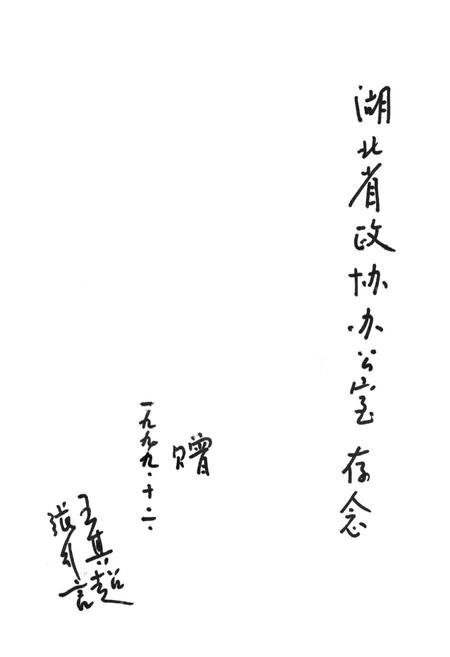 湖北省政协办公室 存念
赠
一九九九.十.二.
王真超